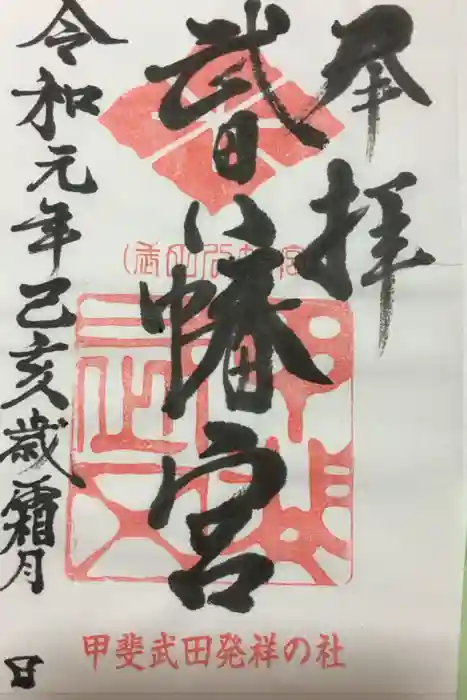 奉拝
武田八幡宮
令和元年己亥歳霜月 日
甲斐武田発祥の社